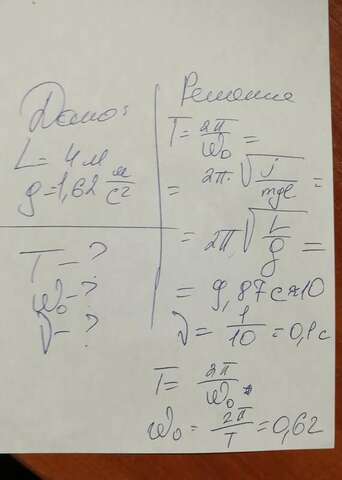 Дано:
L = 4 м
g = 1,62 м/с²
T - ?
ω₀ - ?
ν - ?
Решение
T = 2π/ω₀ =
= 2π · √(J/mgl) =
= 2π √(L/g) =
= 9,87 с ≈ 10
ν = 1/10 = 0,1 с
T = 2π/ω₀
ω₀ = 2π/T = 0,62